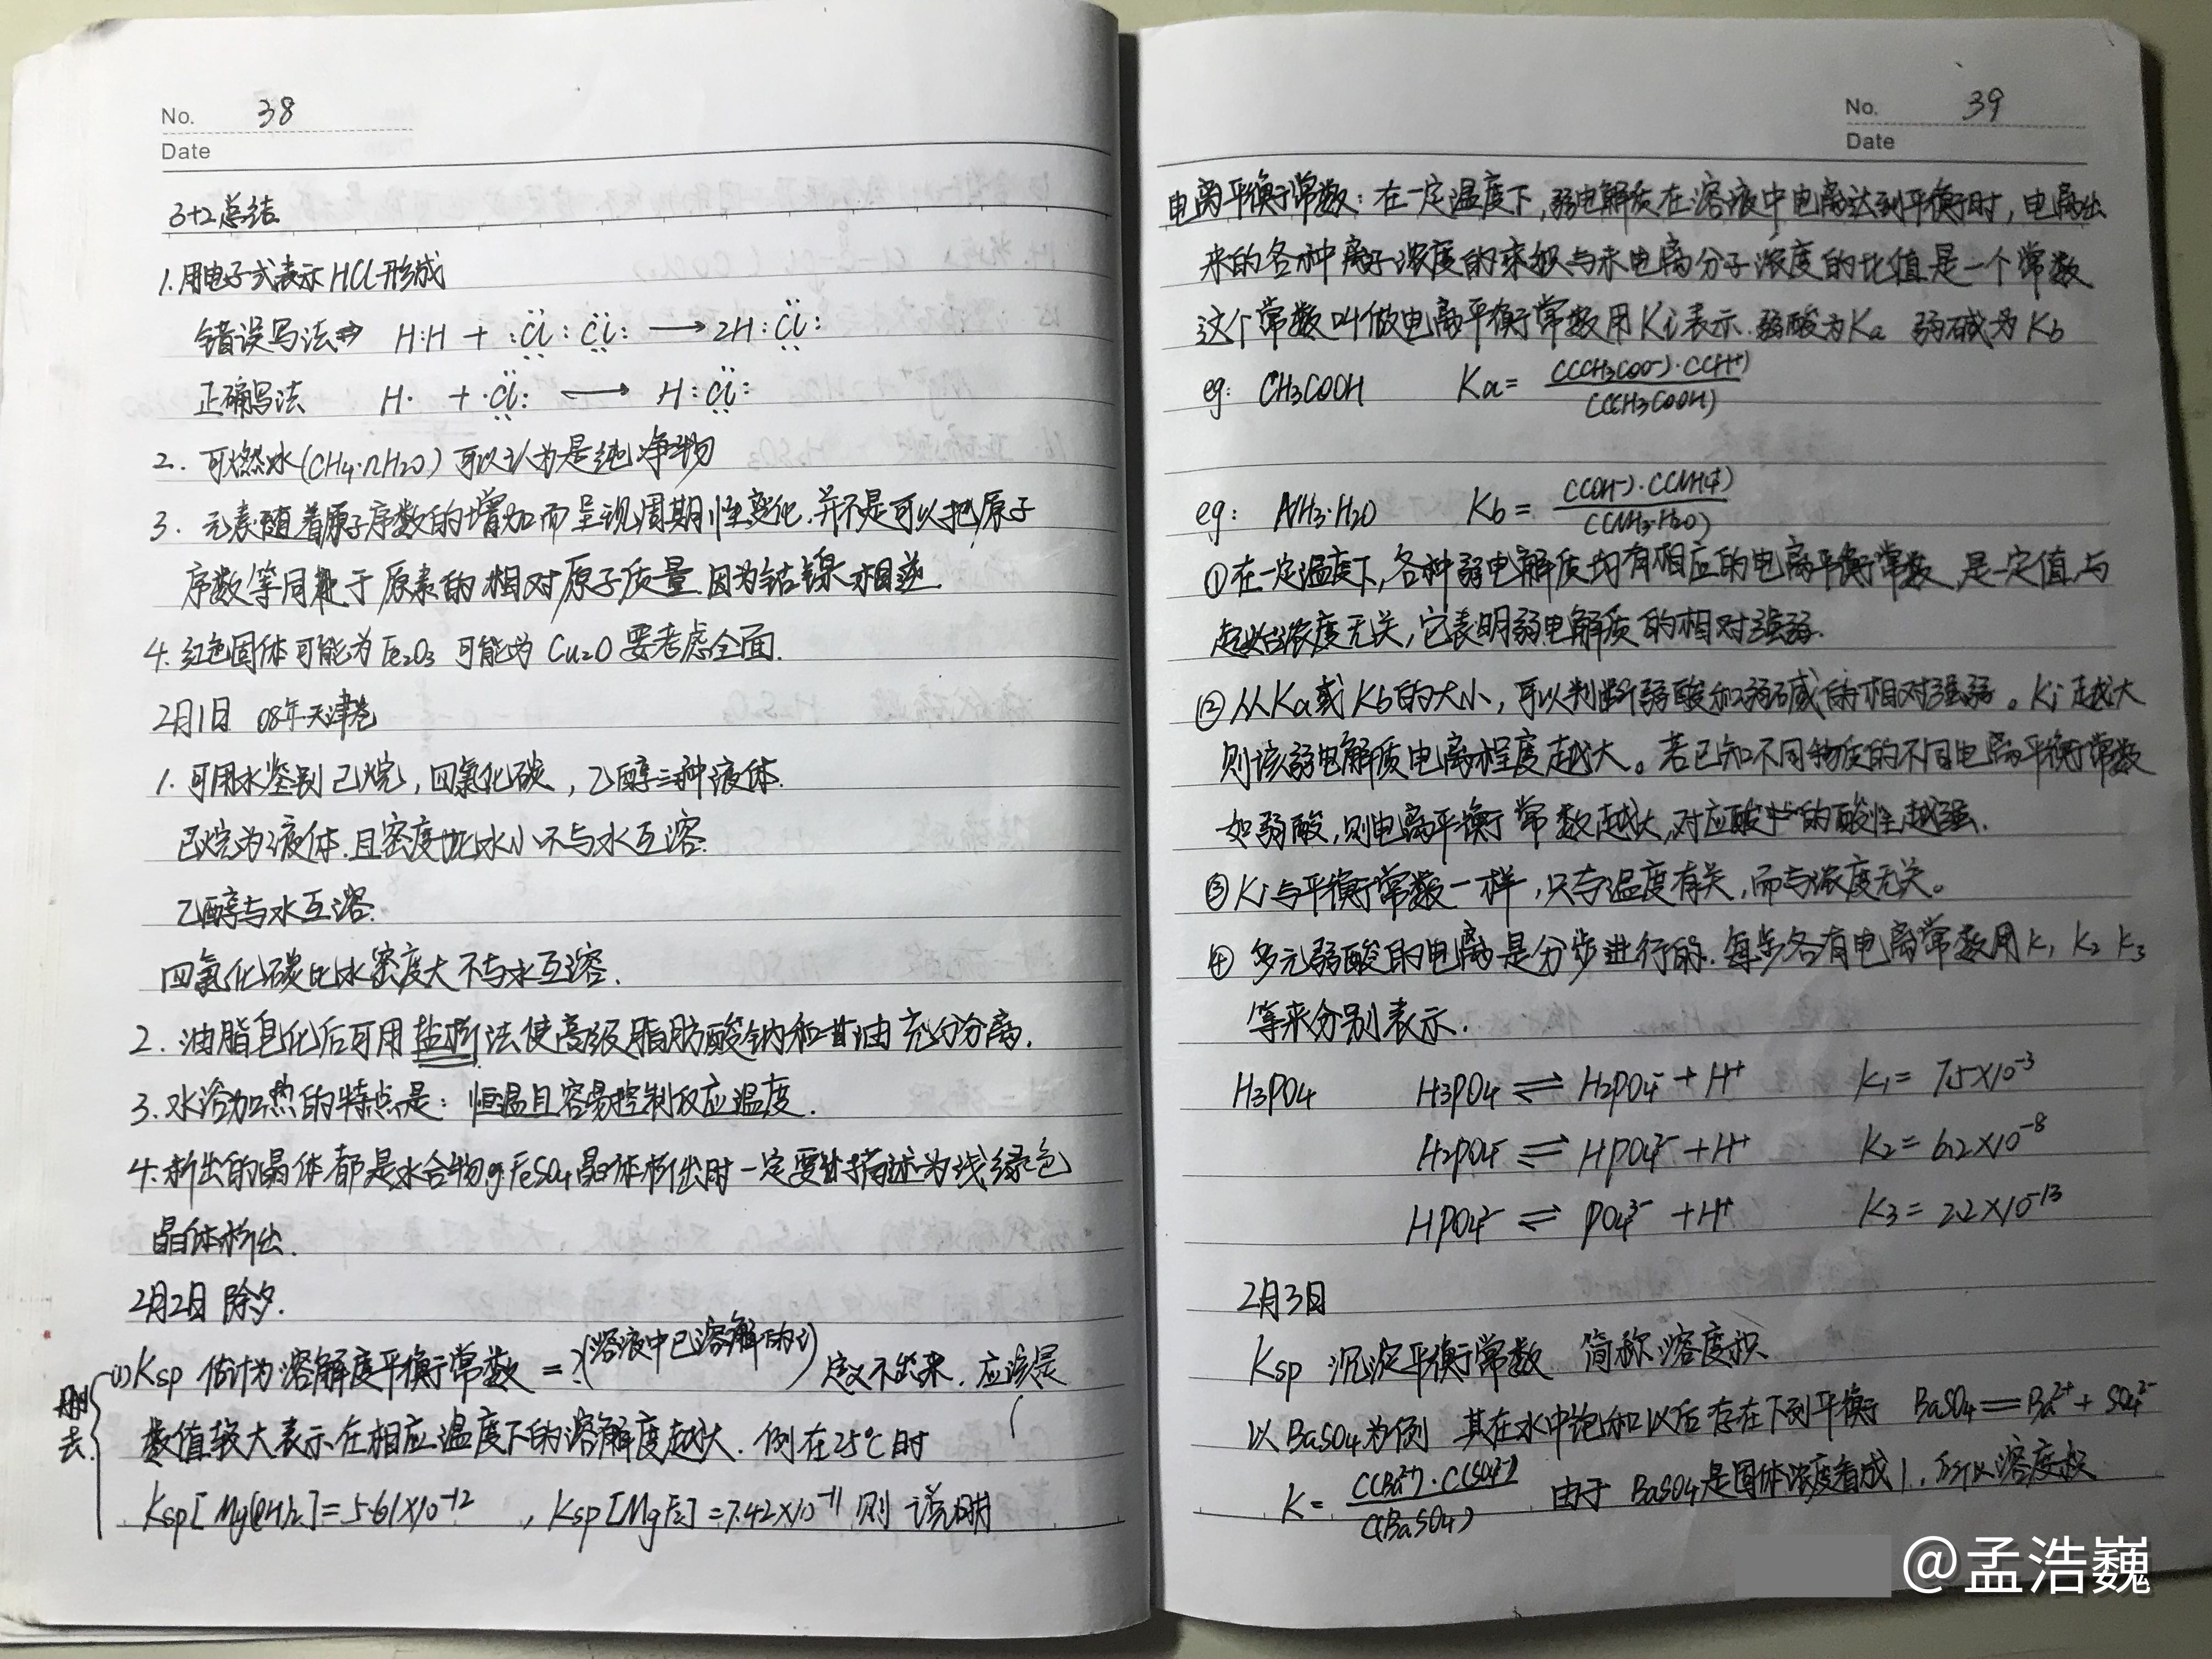 No. 38
Date
3+2总结
1.用电子式表示HCl形成
错误写法⇒ H:H + :Cl:Cl: ⟶ 2H:Cl:
正确写法 H· + ·Cl: ⟶ H:Cl:
2. 可燃冰(CH4·nH2O)可以认为是纯净物
3. 元素随着原子序数的增加而呈现周期性变化.并不是可以把原子
序数等同于原素的相对原子质量.因为钴镍相逆.
4. 红色固体可能为Fe2O3 可能为Cu2O 要考虑全面.
2月1日 08年天津卷
1. 可用水鉴别己烷,四氯化碳,乙醇三种液体.
己烷为液体.且密度比水小不与水互溶.
乙醇与水互溶.
四氯化碳比水密度大不与水互溶.
2. 油脂皂化后可用盐析法使高级脂肪酸钠和甘油充分分离.
3. 水浴加热的特点是: 恒温且容易控制反应温度.
4. 析出的晶体都是水合物eg FeSO4晶体析出时一定要描述为浅绿色
晶体析出.
2月2日 除夕.
删去
(1) Ksp 估计为溶解度平衡常数 = ?(溶液中已溶解的) 定义不出来. 应该是
数值较大表示在相应温度下的溶解度越大. 例在25℃时
Ksp[Mg(OH)2]=5.61×10⁻¹² , Ksp[MgF2]=7.42×10⁻¹¹ 则 说明
No. 39
Date
电离平衡常数: 在一定温度下,弱电解质在溶液中电离达到平衡时, 电离出
来的各种离子浓度的乘积与未电离分子浓度的比值是一个常数
这个常数叫做电离平衡常数用Ki表示.弱酸为Ka 弱碱为Kb
eg: CH3COOH Ka = C(CH3COO⁻)·C(H⁺) / C(CH3COOH)
eg: NH3·H2O Kb = C(OH⁻)·C(NH4⁺) / C(NH3·H2O)
①在一定温度下,各种弱电解质均有相应的电离平衡常数,是一定值,与
起始浓度无关,它表明弱电解质的相对强弱.
②从Ka或Kb的大小,可以判断弱酸和弱碱的相对强弱。Ki越大
则该弱电解质电离程度越大。若已知不同物质的不同电离平衡常数
如弱酸,则电离平衡常数越大,对应酸的酸性越强.
③Ki与平衡常数一样,只与温度有关,而与浓度无关。
④ 多元弱酸的电离是分步进行的.每步各有电离常数用K1 K2 K3
等来分别表示.
H3PO4 H3PO4 ⇌ H2PO4⁻ + H⁺ K1 = 7.5×10⁻³
H2PO4⁻ ⇌ HPO4²⁻ + H⁺ K2 = 6.2×10⁻⁸
HPO4²⁻ ⇌ PO4³⁻ + H⁺ K3 = 2.2×10⁻¹³
2月3日
Ksp 沉淀平衡常数 简称溶度积
以BaSO4为例 其在水中饱和以后存在下列平衡 BaSO4 = Ba²⁺ + SO4²⁻
K = C(Ba²⁺)·C(SO4²⁻) / C(BaSO4) 由于 BaSO4是固体浓度看成1, 所以溶度积
@孟浩巍